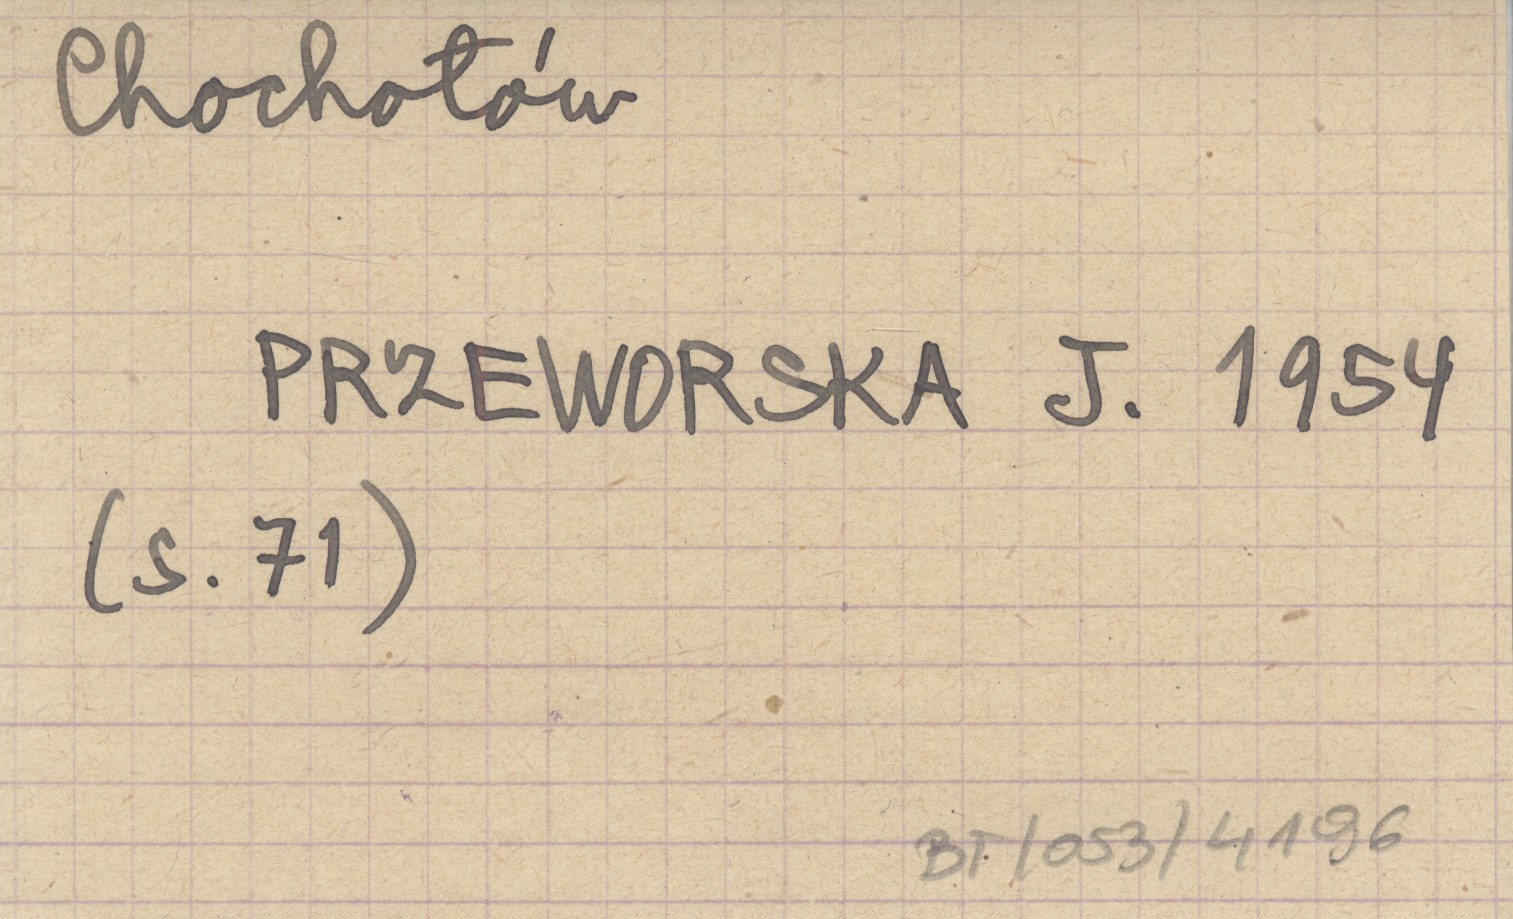 Chochołów
PRZEWORSKA J. 1954
(s. 71)
BT/053/4196